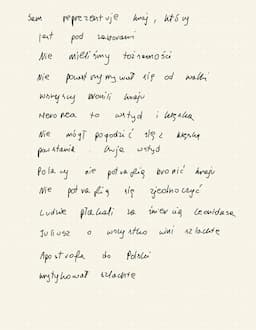 Sam reprezentuje kraj, który
jest pod zaborami
Nie mieliśmy tożsamości
Nie powstrzymywał się od walki
wszyscy bronili kraju
to wstyd i klęska
Nie mógł pogodzić się z klęską
powstania. Czuje wstyd
Polacy nie potrafią bronić kraju
Nie potrafią się zjednoczyć
Ludzie płakali za śmiercią Leonidasa
Juliusz o wszystko wini szlachtę
Apostrofa do Polski
krytykował szlachtę